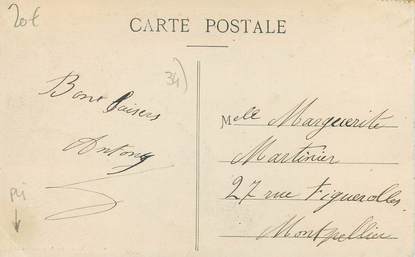 20€
CARTE POSTALE
34)
Bons baisers
Antony
Melle Marguerite
Martinier
27 rue Figuerolles
Montpellier
Pli